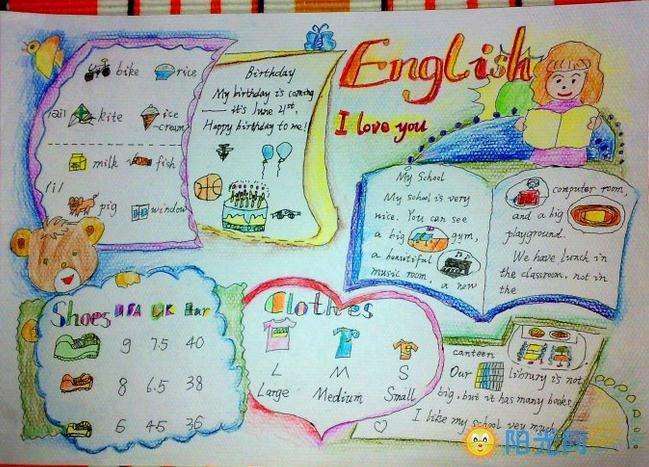 English
I love you
/ai/
bike
rice
kite
ice
cream
milk
fish
/i/
pig
window
Birthday
My birthday is coming
it's June 4st.
Happy birthday to me!
My School
My school is very
nice. You can see
a big gym,
a beautiful
music room, a new
computer room,
and a big
playground.
We have lunch in
the classroom, not in
the
canteen
Our library is not
big, but it has many books.
I like my school very much.
Shoes USA UK Eur
9 7.5 40
8 6.5 38
6 4.5 36
Clothes
L M S
Large Medium Small
阳光网